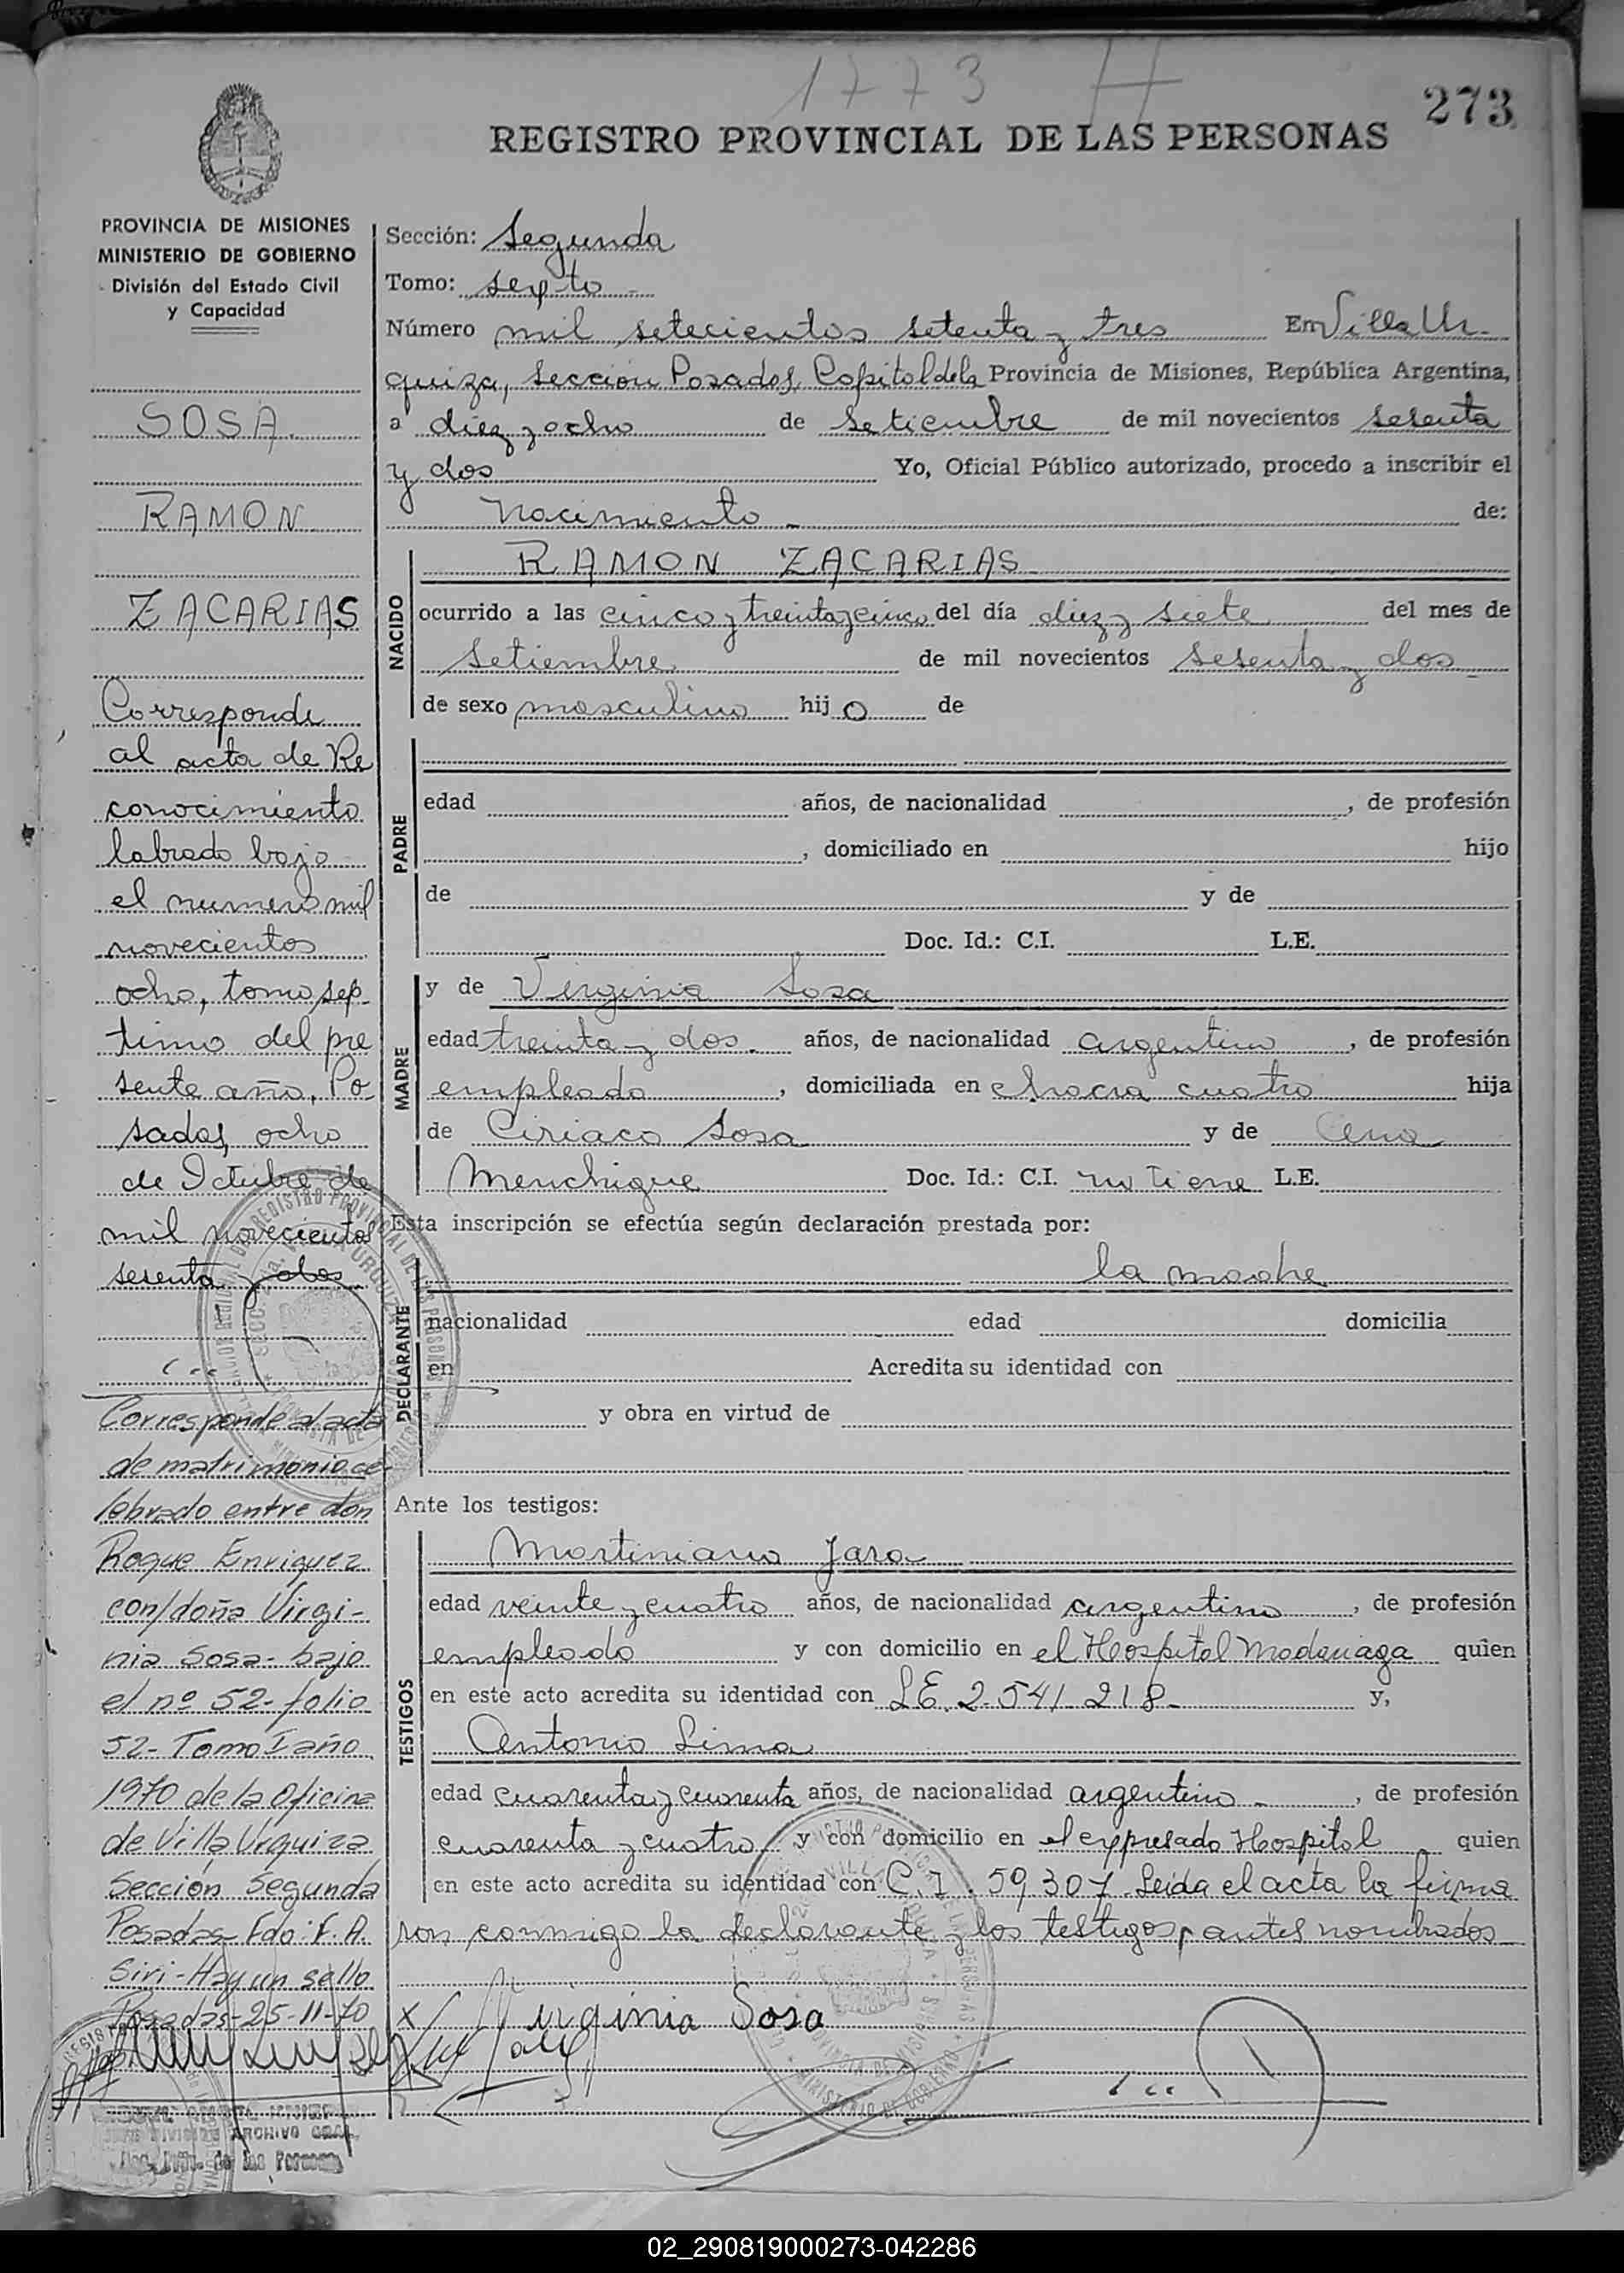 1773 H
273
REGISTRO PROVINCIAL DE LAS PERSONAS
PROVINCIA DE MISIONES
MINISTERIO DE GOBIERNO
División del Estado Civil
y Capacidad
SOSA
RAMON
ZACARIAS
Corresponde
al acta de Re
conocimiento
labrado bajo
el numero mil
novecientos
ocho, tomo sep
timo del pre
sente año. Po
sadas, ocho
de Octubre de
mil novecientos
sesenta y dos
Corresponde al acta
de matrimonio ce-
lebrado entre don
Roque Enriquez
con/doña Virgi-
nia Sosa- bajo
el nº 52- folio
52- Tomo I año
1970 de la Oficina
de Villa Urquiza
Sección Segunda
Posadas- Fdo: F. A.
Siri- Hay un sello
Posadas- 25-11-70
Sección: Segunda
Tomo: sexto
Número mil setecientos setenta y tres En Villa Ur-
quiza, Seccion Posadas, Capital de la Provincia de Misiones, República Argentina,
a diez y ocho de Setiembre de mil novecientos sesenta
y dos Yo, Oficial Público autorizado, procedo a inscribir el
Nacimiento de:
NACIDO
RAMON ZACARIAS
ocurrido a las cinco y treinta y cinco del día diez y siete del mes de
Setiembre de mil novecientos sesenta y dos
de sexo masculino hijo de
PADRE
edad años, de nacionalidad , de profesión
, domiciliado en hijo
de y de
Doc. Id.: C.I. L.E.
MADRE
y de Virginia Sosa
edad treinta y dos años, de nacionalidad argentina , de profesión
empleada , domiciliada en chacra cuatro hija
de Ciriaco Sosa y de
Menchique Doc. Id.: C.I. no tiene L.E.
Esta inscripción se efectúa según declaración prestada por:
DECLARANTE
la madre
nacionalidad edad domicilia
en Acredita su identidad con
y obra en virtud de
Ante los testigos:
TESTIGOS
Martiniano Jara
edad veinte y cuatro años, de nacionalidad argentino , de profesión
empleado y con domicilio en el Hospital Madariaga quien
en este acto acredita su identidad con L.E. 2.541.218 y,
Antonio Lima
edad cuarenta y cuarenta años, de nacionalidad argentino , de profesión
cuarenta y cuatro y con domicilio en el expresado Hospital quien
en este acto acredita su identidad con C.I. 59.307. Leída el acta la firma
ron conmigo la declarante y los testigos antes nombrados
x Virginia Sosa
02_290819000273-042286